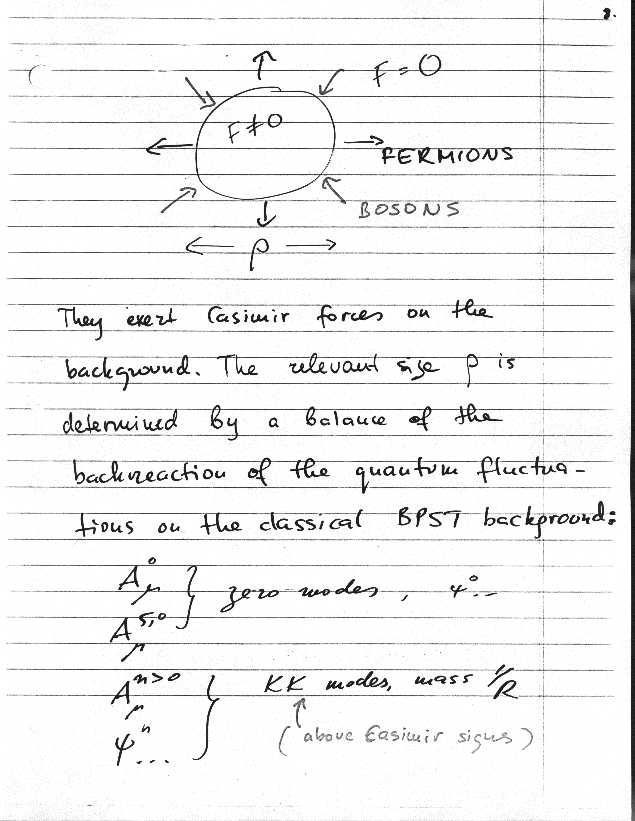 8.
F = 0
F ≠ 0
FERMIONS
BOSONS
ρ
They exert Casimir forces on the
background. The relevant size ρ is
determined by a balance of the
backreaction of the quantum fluctua-
tions on the classical BPST background:
A⁰_μ } zero modes, ψ⁰...
A^{5,0}_μ
A^{n>0}_μ } KK modes, mass 1/R
ψⁿ... (above Casimir signs)